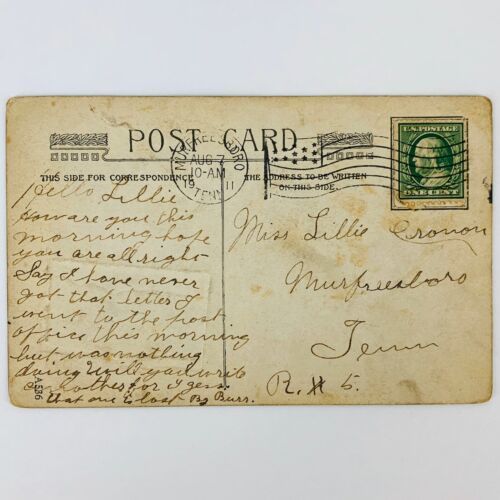 POST CARD
THIS SIDE FOR CORRESPONDENCE
THE ADDRESS TO BE WRITTEN
ON THIS SIDE.
MURFREESBORO
AUG 7
10-AM
1911
TENN
U.S. POSTAGE
ONE CENT
Hello Lillie
How are you this
morning hope
you are all right
Say I have never
got that letter I
went to the post
office this morning
but was nothing
doing Will you write
another for I gess
that one is lost By Burr.
A586
Miss Lillie Cronon
Murfreesboro
Tenn
R. # 5.